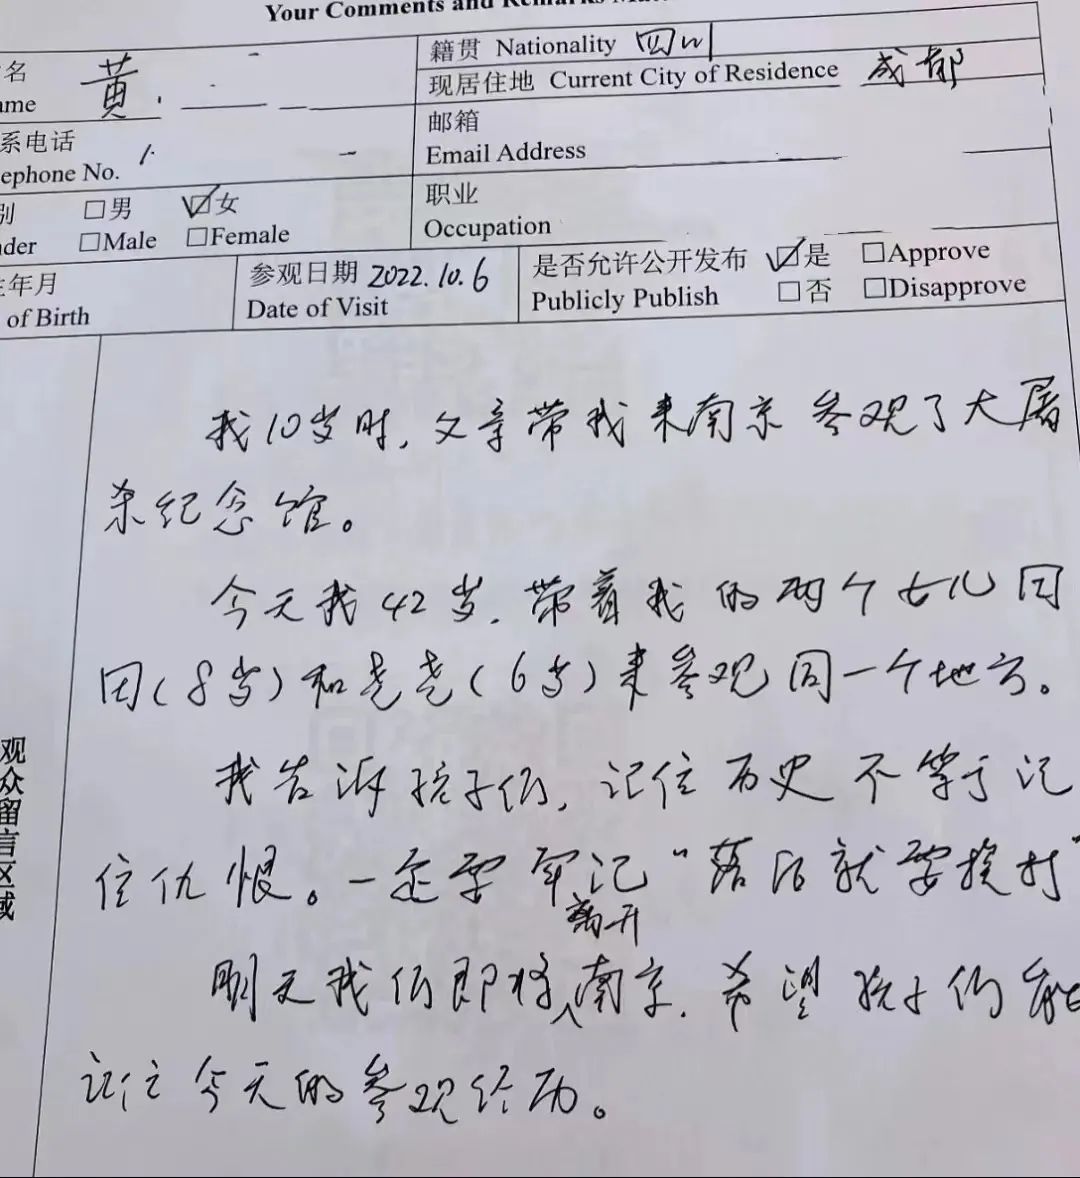 Your Comments and Remarks
名 黄
籍贯 Nationality 四川
ame
现居住地 Current City of Residence 成都
系电话
ephone No. 1
邮箱
Email Address
别 □男 ☑女
der □Male □Female
职业
Occupation
年月
of Birth
参观日期 2022.10.6
Date of Visit
是否允许公开发布 ☑是 □Approve
Publicly Publish □否 □Disapprove
观众留言区域
我10岁时,父亲带我来南京参观了大屠
杀纪念馆。
今天我42岁,带着我的两个女儿团
团(8岁)和尧尧(6岁)来参观同一个地方。
我告诉孩子们,记住历史不等于记
住仇恨。一定要牢记“落后就要挨打”
明天我们即将离开南京,希望孩子们能
记住今天的参观经历。